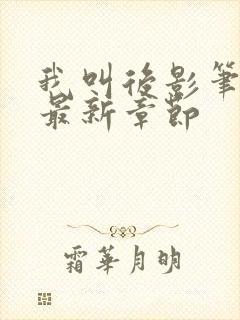 我叫後影筆
最新章節
霜華月明